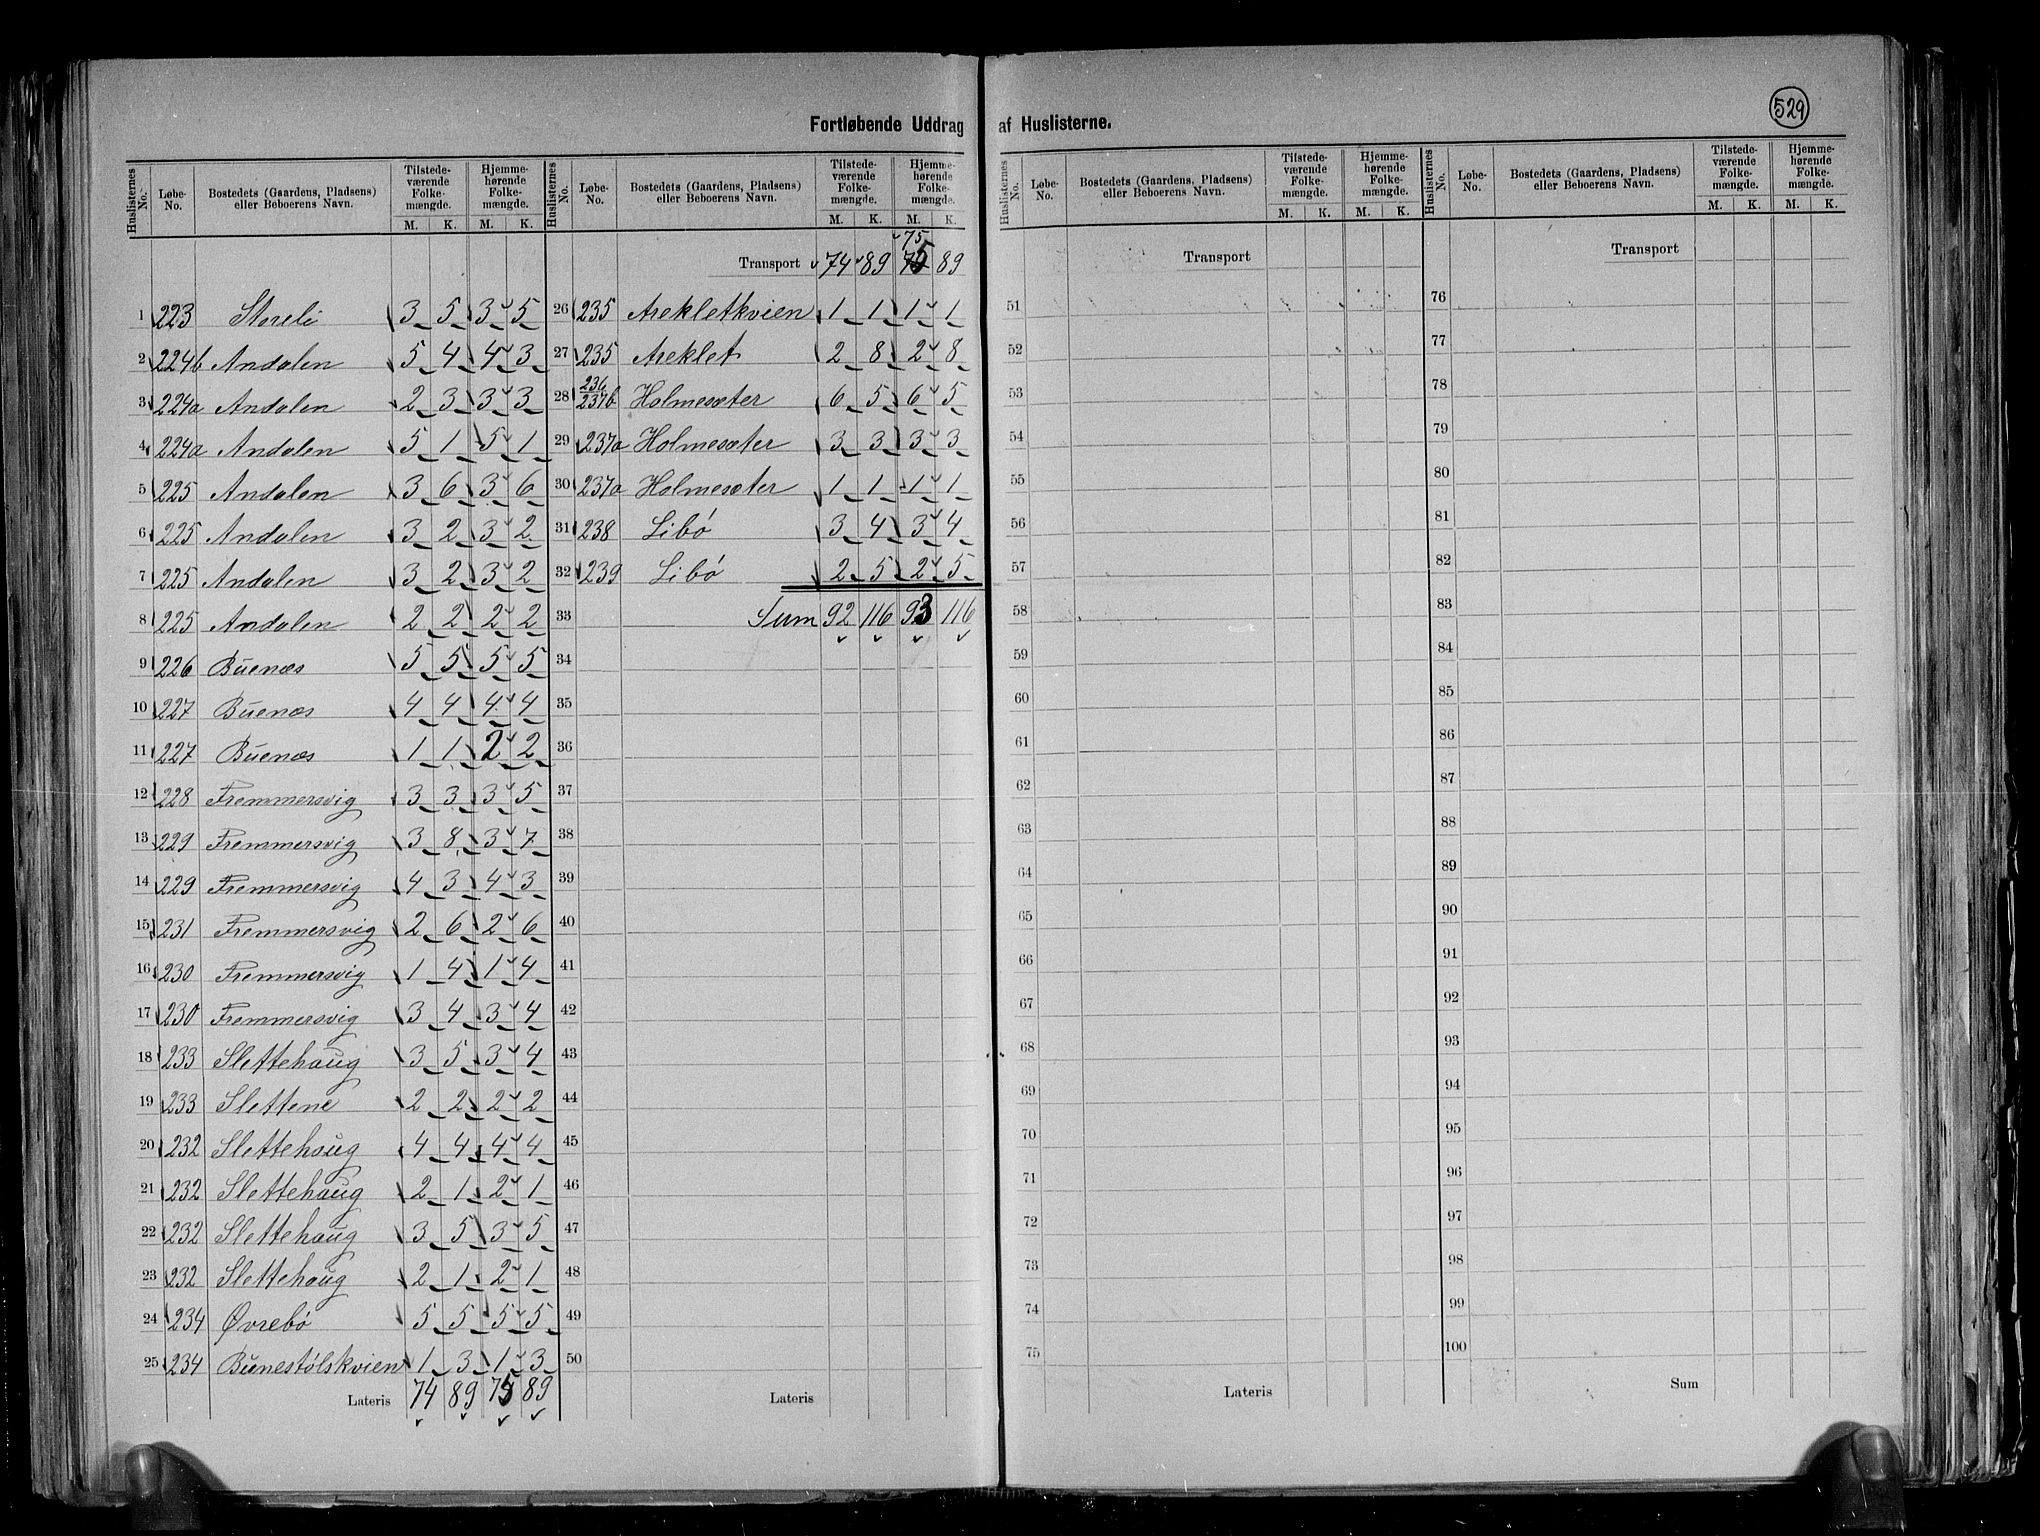 529
Fortløbende Uddrag af Huslisterne.
Huslisternes No. | Løbe-No. | Bostedets (Gaardens, Pladsens) eller Beboerens Navn. | Tilstedeværende Folkemængde. M. K. | Hjemmehørende Folkemængde. M. K.
1 223 Storeli 3 5 3 5
2 224b Andalen 5 4 4 3
3 224a Andalen 2 3 3 3
4 224a Andalen 5 1 5 1
5 225 Andalen 3 6 3 6
6 225 Andalen 3 2 3 2
7 225 Andalen 3 2 3 2
8 225 Andalen 2 2 2 2
9 226 Buenæs 5 5 5 5
10 227 Buenæs 4 4 4 4
11 227 Buenæs 1 1 2 2
12 228 Fremmersvig 3 3 3 5
13 229 Fremmersvig 3 8 3 7
14 229 Fremmersvig 4 3 4 3
15 231 Fremmersvig 2 6 2 6
16 230 Fremmersvig 1 4 1 4
17 230 Fremmersvig 3 4 3 4
18 233 Slettehaug 3 5 3 4
19 233 Slettene 2 2 2 2
20 232 Slettehaug 4 4 4 4
21 232 Slettehaug 2 1 2 1
22 232 Slettehaug 3 5 3 5
23 232 Slettehaug 2 1 2 1
24 234 Øvrebø 5 5 5 5
25 234 Bunestølskvien 1 3 1 3
Lateris 74 89 75 89
Huslisternes No. | Løbe-No. | Bostedets (Gaardens, Pladsens) eller Beboerens Navn. | Tilstedeværende Folkemængde. M. K. | Hjemmehørende Folkemængde. M. K.
75
Transport 74 89 75 89
26 235 Arekletkvien 1 1 1 1
27 235 Areklet 2 8 2 8
28 236/237b Holmesæter 6 5 6 5
29 237a Holmesæter 3 3 3 3
30 237a Holmesæter 1 1 1 1
31 238 Libø 3 4 3 4
32 239 Libø 2 5 2 5
33 Sum 92 116 93 116
34
35
36
37
38
39
40
41
42
43
44
45
46
47
48
49
50
Lateris
Huslisternes No. | Løbe-No. | Bostedets (Gaardens, Pladsens) eller Beboerens Navn. | Tilstedeværende Folkemængde. M. K. | Hjemmehørende Folkemængde. M. K.
Transport
51
52
53
54
55
56
57
58
59
60
61
62
63
64
65
66
67
68
69
70
71
72
73
74
75
Lateris
Huslisternes No. | Løbe-No. | Bostedets (Gaardens, Pladsens) eller Beboerens Navn. | Tilstedeværende Folkemængde. M. K. | Hjemmehørende Folkemængde. M. K.
Transport
76
77
78
79
80
81
82
83
84
85
86
87
88
89
90
91
92
93
94
95
96
97
98
99
100
Sum